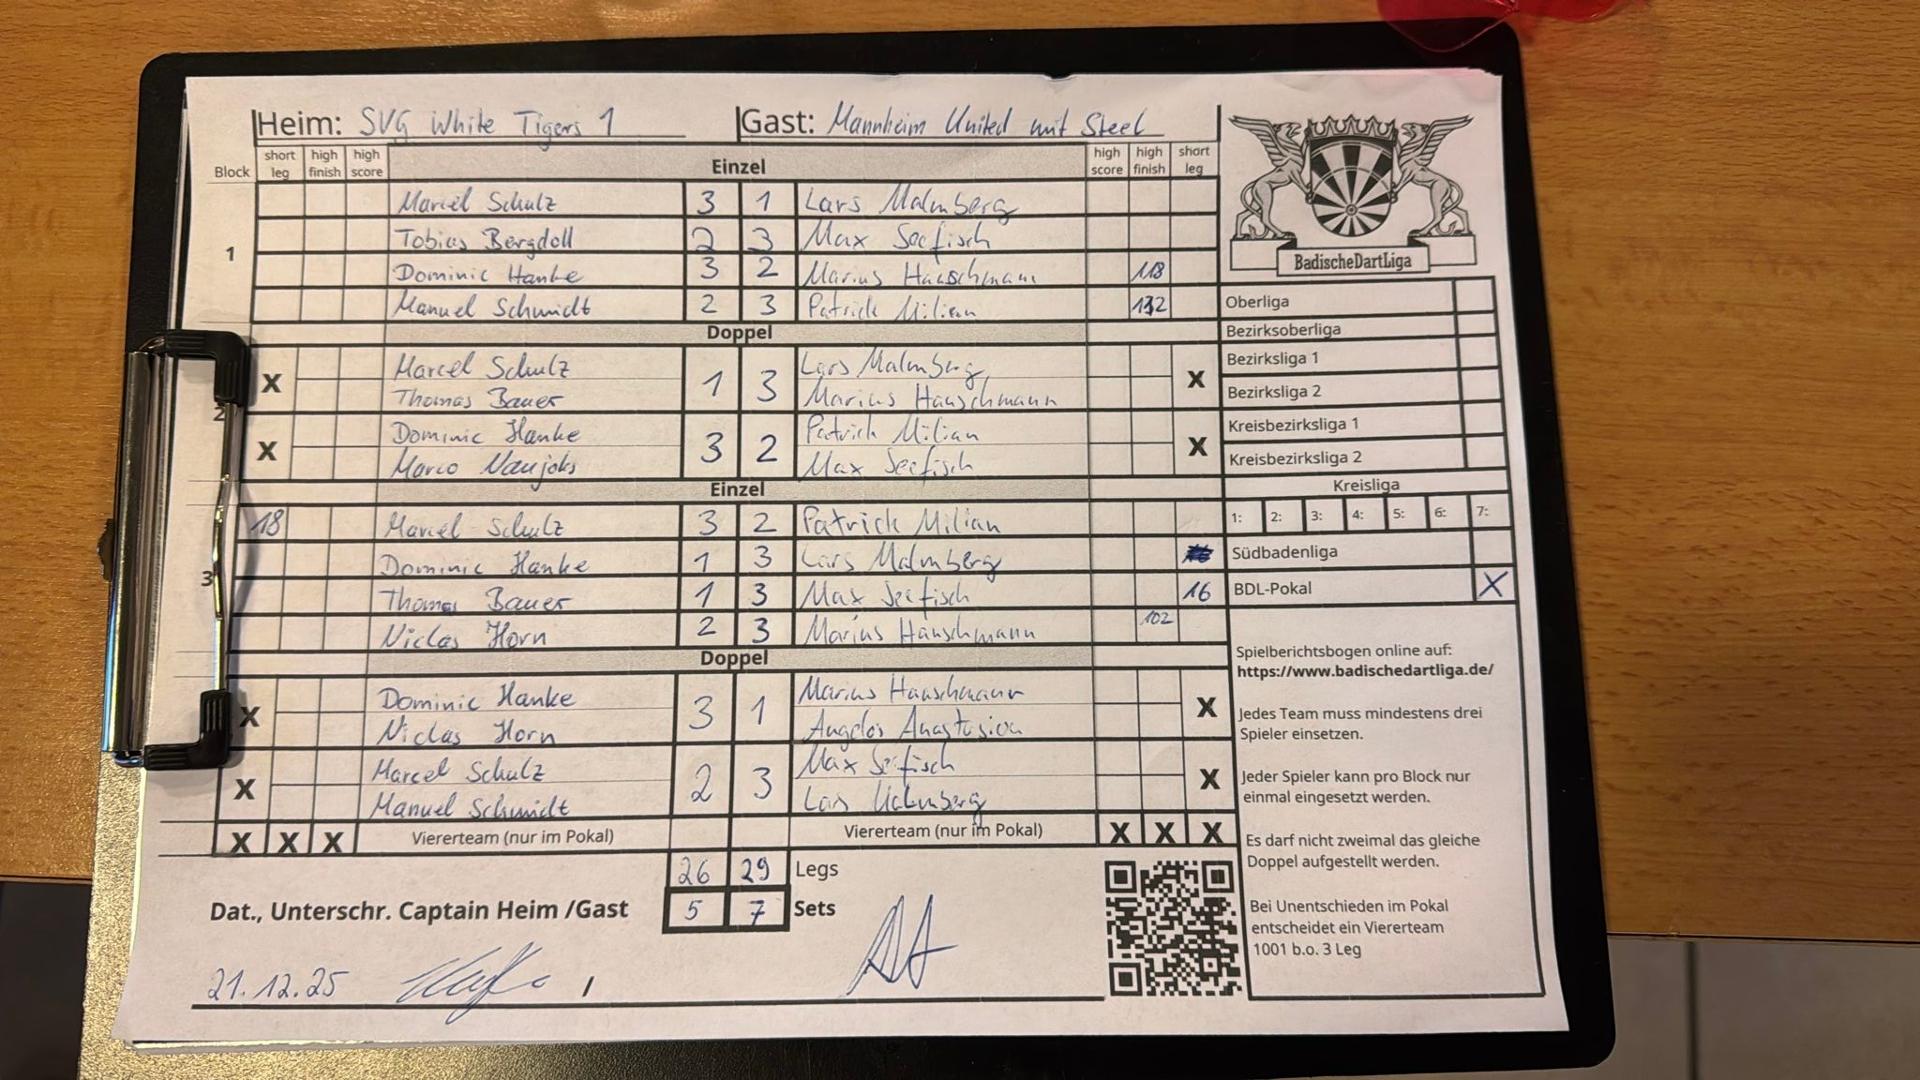 Heim: SVG White Tigers 1 Gast: Mannheim United mit Steel
Block short leg high finish high score Einzel high score high finish short leg
1
Marcel Schulz 3 1 Lars Malmberg
Tobias Bergdoll 2 3 Max Seefisch
Dominic Hanke 3 2 Marius Hauschmann 118
Manuel Schmidt 2 3 Patrick Milian 132
Doppel
2
X Marcel Schulz 1 3 Lars Malmberg X
Thomas Bauer Marius Hauschmann
X Dominic Hanke 3 2 Patrick Milian X
Marco Naujoks Max Seefisch
Einzel
3
18 Marcel Schulz 3 2 Patrick Milian
Dominic Hanke 1 3 Lars Malmberg
Thomas Bauer 1 3 Max Seefisch 16
Niclas Horn 2 3 Marius Hauschmann 102
Doppel
X Dominic Hanke 3 1 Marius Hauschmann X
Niclas Horn Angelos Anastasiou
X Marcel Schulz 2 3 Max Seefisch X
Manuel Schmidt Lars Malmberg
X X X Viererteam (nur im Pokal) Viererteam (nur im Pokal) X X X
26 29 Legs
Dat., Unterschr. Captain Heim /Gast 5 7 Sets
21.12.25 /
BadischeDartLiga
Oberliga
Bezirksoberliga
Bezirksliga 1
Bezirksliga 2
Kreisbezirksliga 1
Kreisbezirksliga 2
Kreisliga
1: 2: 3: 4: 5: 6: 7:
Südbadenliga
BDL-Pokal X
Spielberichtsbogen online auf:
https://www.badischedartliga.de/
Jedes Team muss mindestens drei
Spieler einsetzen.
Jeder Spieler kann pro Block nur
einmal eingesetzt werden.
Es darf nicht zweimal das gleiche
Doppel aufgestellt werden.
Bei Unentschieden im Pokal
entscheidet ein Viererteam
1001 b.o. 3 Leg